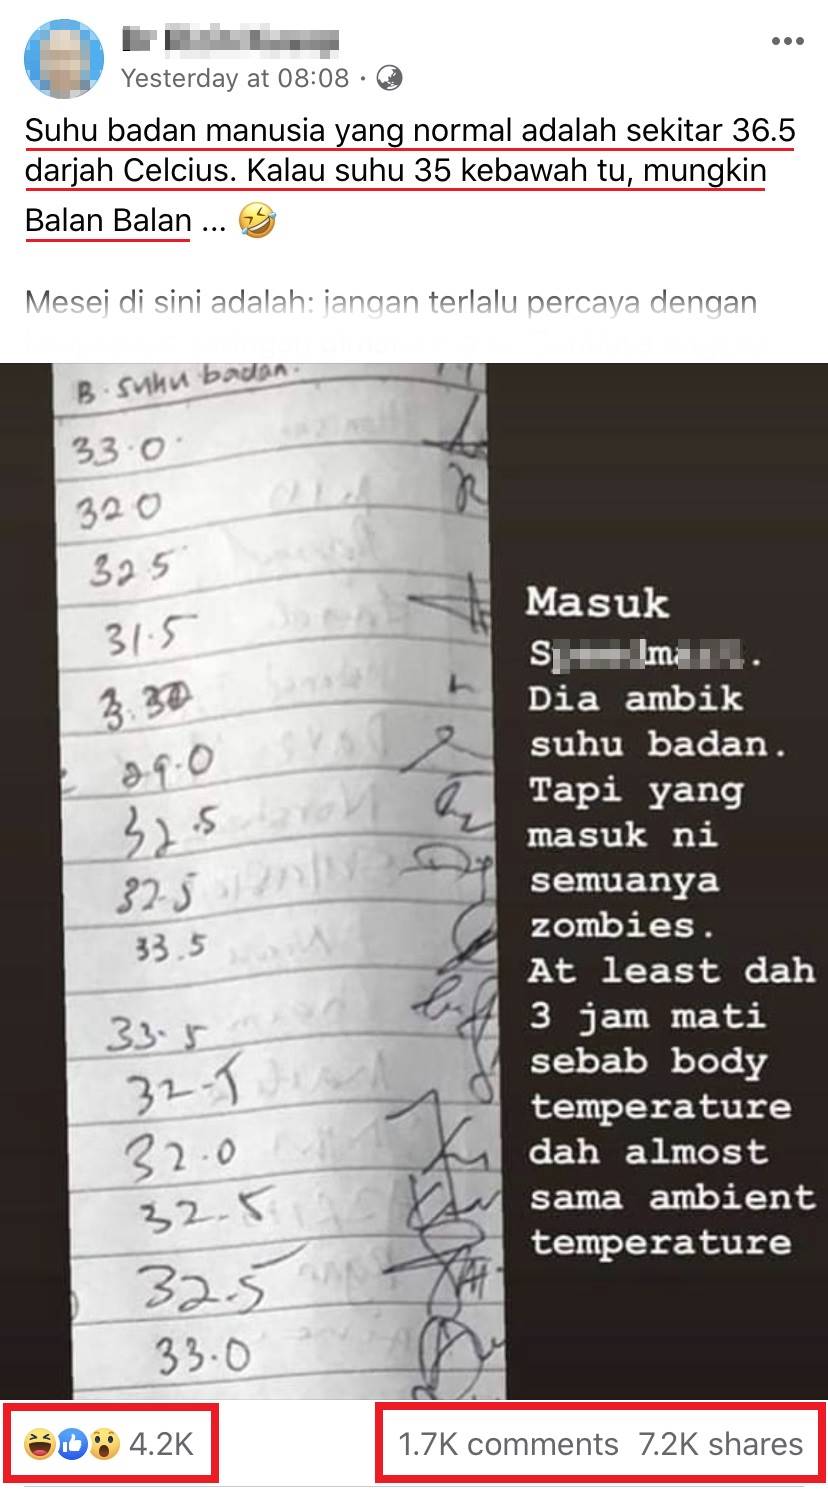 Dr
Yesterday at 08:08
Suhu badan manusia yang normal adalah sekitar 36.5
darjah Celcius. Kalau suhu 35 kebawah tu, mungkin
Balan Balan ... 🤣
Mesej di sini adalah: jangan terlalu percaya dengan
B. suhu badan.
33.0
320
32 5
31.5
3.30
29.0
32.5
32.5
33.5
33.5
32-5
32.0
32.5
32.5
33.0
Masuk
Dia ambik
suhu badan.
Tapi yang
masuk ni
semuanya
zombies.
At least dah
3 jam mati
sebab body
temperature
dah almost
sama ambient
temperature
4.2K
1.7K comments 7.2K shares